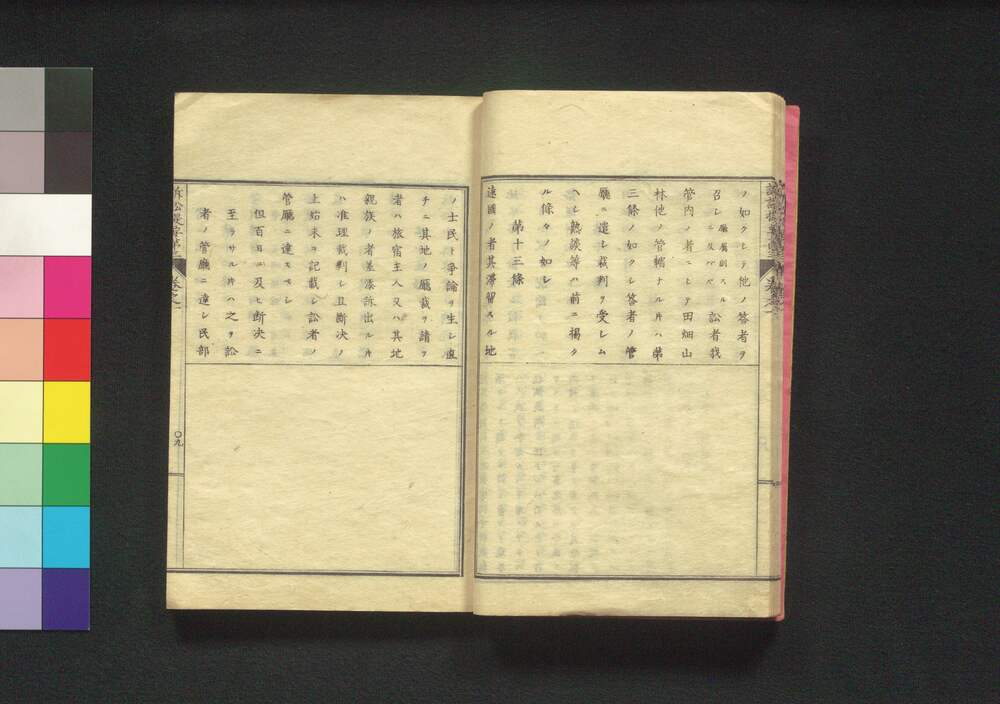 ノ如クシテ他ノ答者ヲ
召シ
訟者我
管内ノ者ニシテ田畑山
林他ノ管轄ナル片ハ第
三條ノ如クシ答者ノ管
廳ニ達シ裁判ヲ受シム
ヘシ熟談等ハ前ニ揚ク
ル條々ノ如シ
第十三條
遠國ノ者其滞留スル地
ノ士民ト争論ヲ生シ直
チニ其地ノ廳裁ヲ請フ
者ハ旅宿主人又ハ其地
親族ノ者差添訴出ル片
ハ准理裁判シ且断决ノ
上始末ヲ記載シ訟者ノ
管廳ニ達スヘシ
但百日ニ及ヒ断决ニ
至ラサル片ハ之ヲ訟
者ノ管廳ニ達シ民部
卷之一
〇九